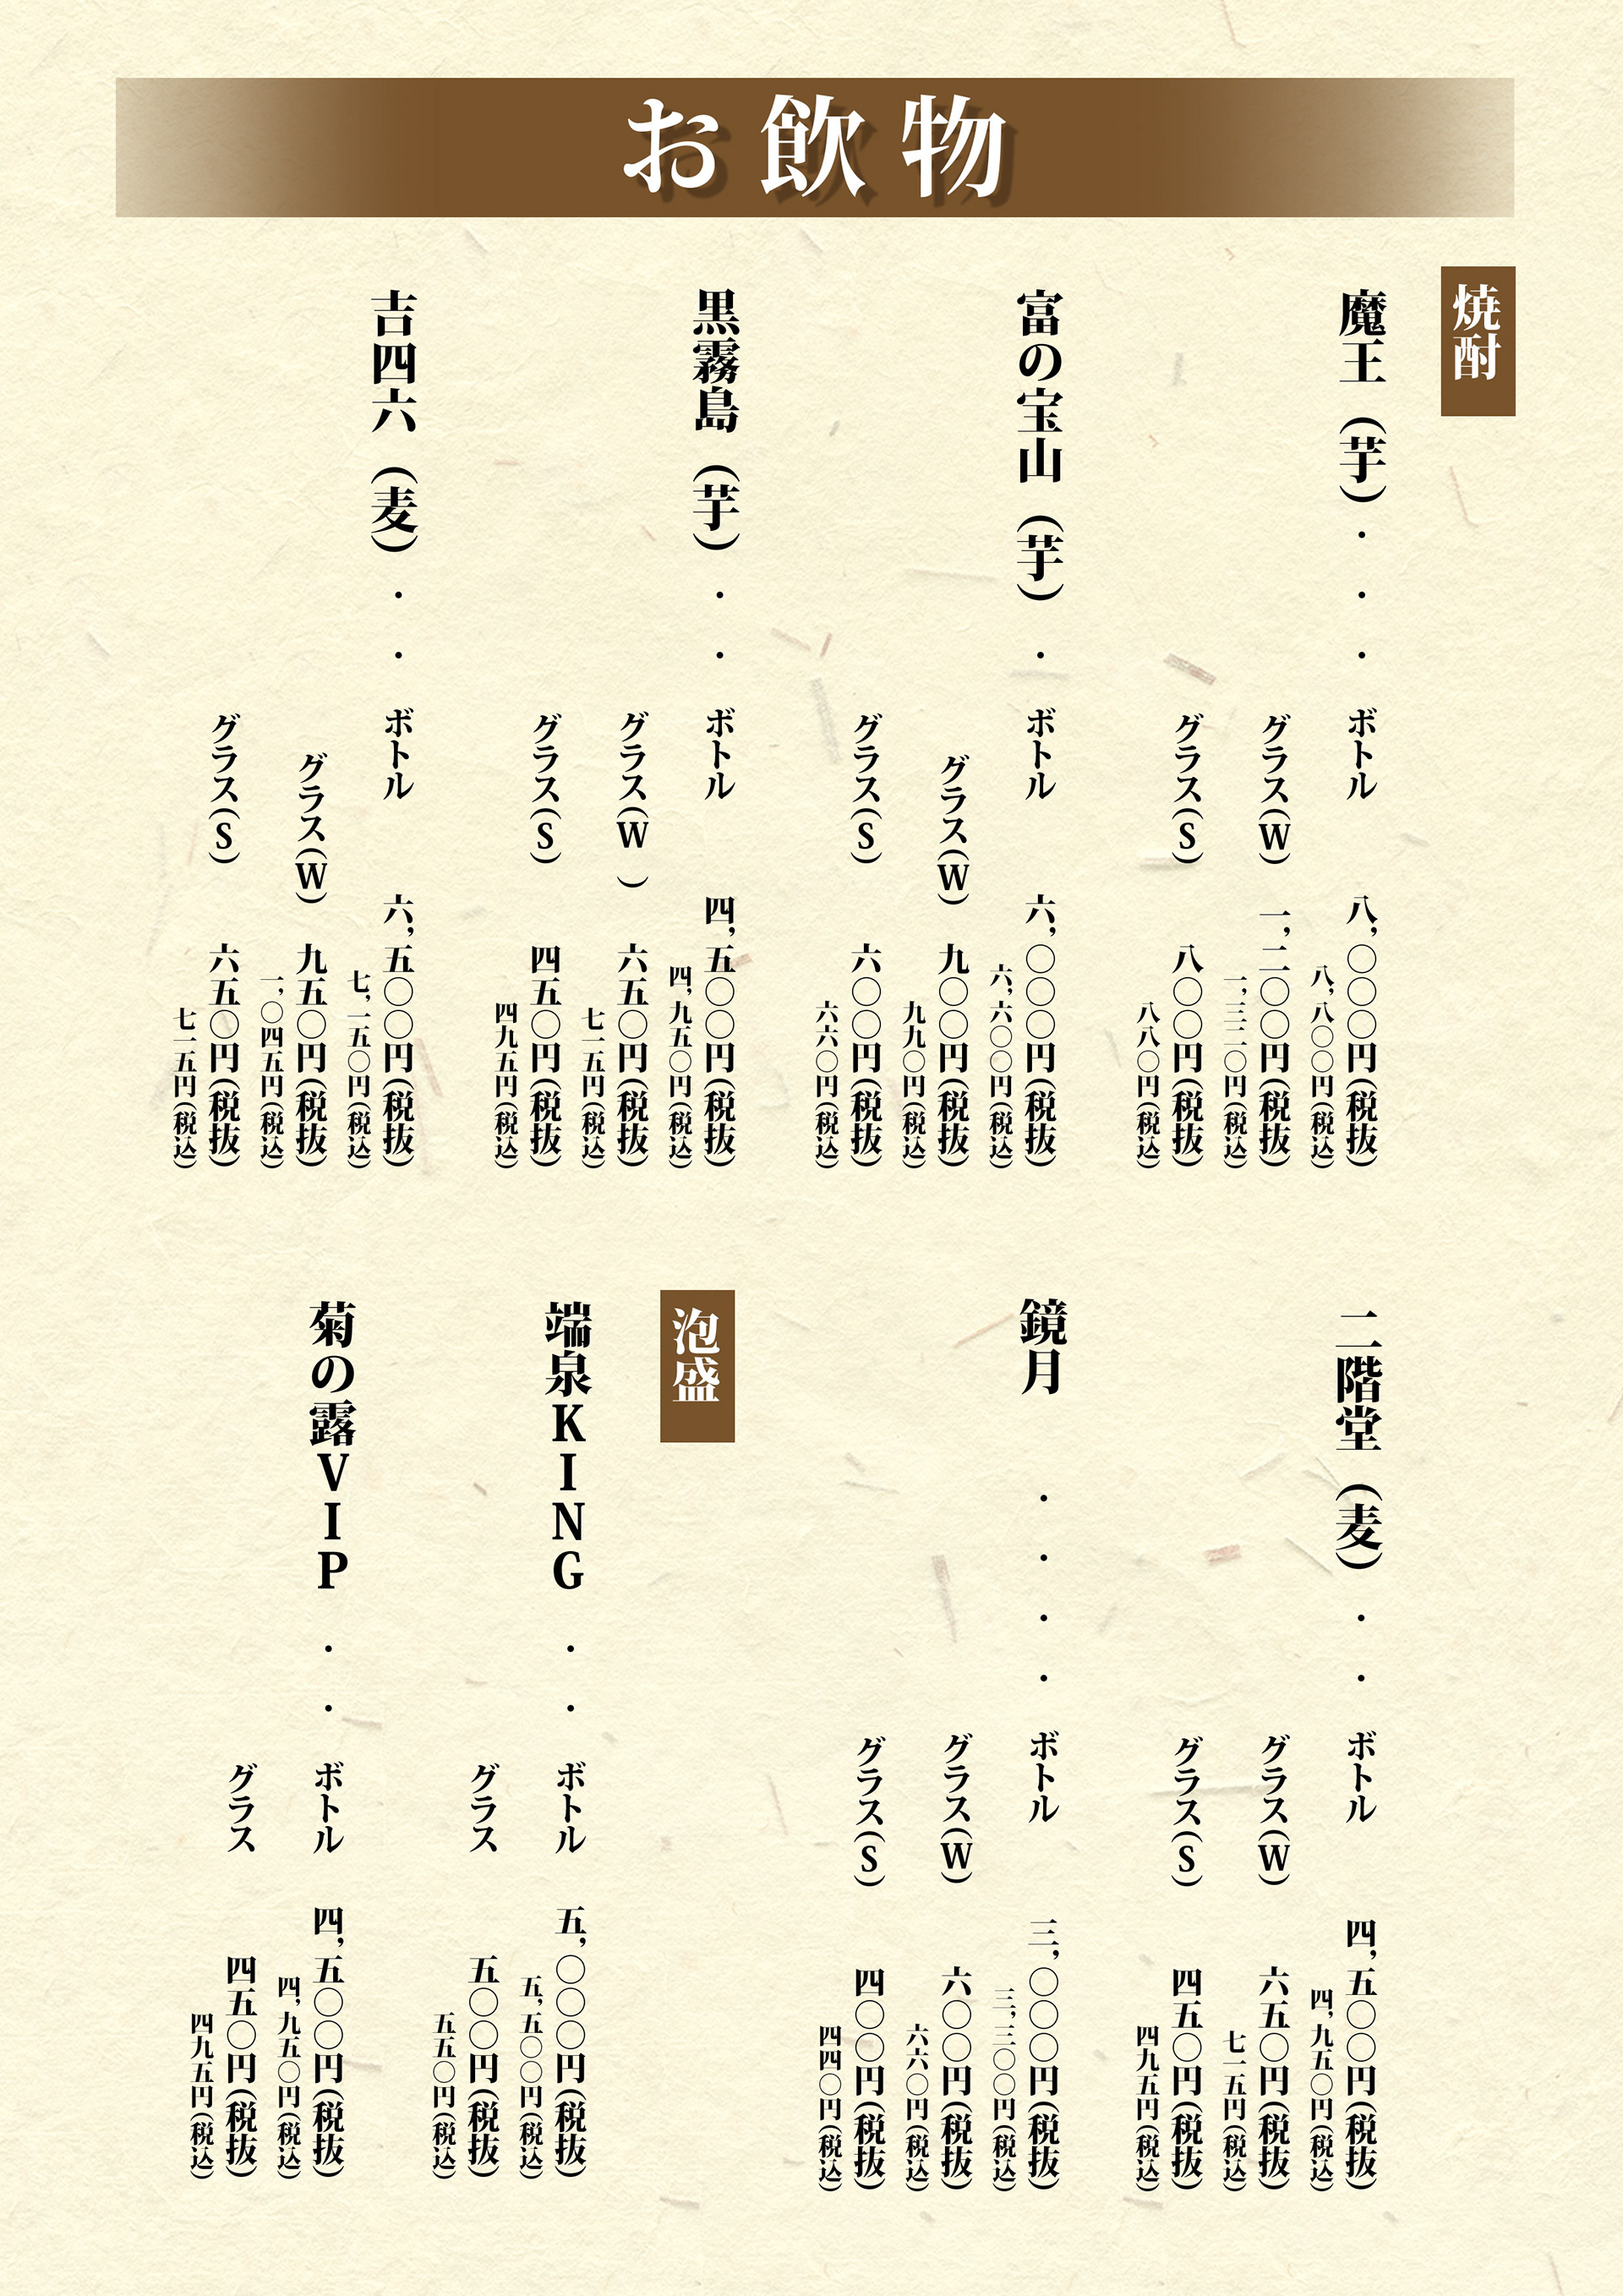 お飲物
焼酎
魔王（芋）・・・ボトル 八,〇〇〇円(税抜)
八,八〇〇円(税込)
グラス(W) 一,二〇〇円(税抜)
一,三二〇円(税込)
グラス(S) 八〇〇円(税抜)
八八〇円(税込)
富の宝山（芋）・ボトル 六,〇〇〇円(税抜)
六,六〇〇円(税込)
グラス(W) 九〇〇円(税抜)
九九〇円(税込)
グラス(S) 六〇〇円(税抜)
六六〇円(税込)
黒霧島（芋）・・ボトル 四,五〇〇円(税抜)
四,九五〇円(税込)
グラス(W ) 六五〇円(税抜)
七一五円(税込)
グラス(S) 四五〇円(税抜)
四九五円(税込)
吉四六（麦）・・ボトル 六,五〇〇円(税抜)
七,一五〇円(税込)
グラス(W) 九五〇円(税抜)
一,〇四五円(税込)
グラス(S) 六五〇円(税抜)
七一五円(税込)
二階堂（麦）・・ボトル 四,五〇〇円(税抜)
四,九五〇円(税込)
グラス(W) 六五〇円(税抜)
七一五円(税込)
グラス(S) 四五〇円(税抜)
四九五円(税込)
鏡月・・・・ボトル 三,〇〇〇円(税抜)
三,三〇〇円(税込)
グラス(W) 六〇〇円(税抜)
六六〇円(税込)
グラス(S) 四〇〇円(税抜)
四四〇円(税込)
泡盛
端泉KING・・ボトル 五,〇〇〇円(税抜)
五,五〇〇円(税込)
グラス 五〇〇円(税抜)
五五〇円(税込)
菊の露VIP・・ボトル 四,五〇〇円(税抜)
四,九五〇円(税込)
グラス 四五〇円(税抜)
四九五円(税込)